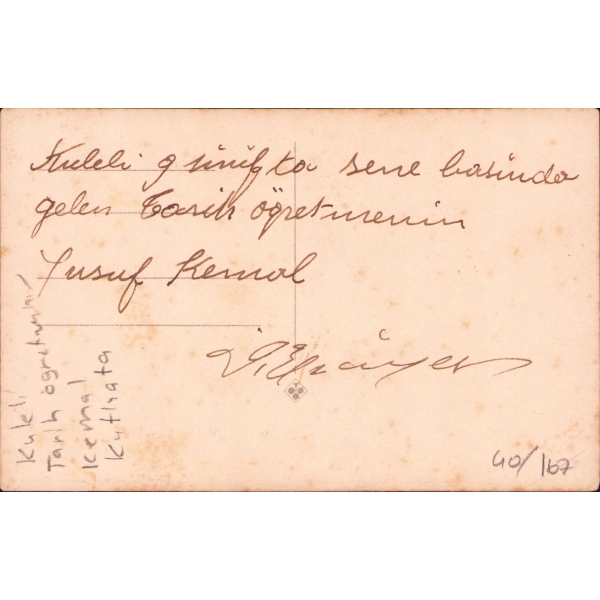 Kuleli 9 sınıfta sene basinda
gelen Tarih öğretmenin
Yusuf Kemal
Kuleli
Tarih öğretmeni
Kemal
40/167